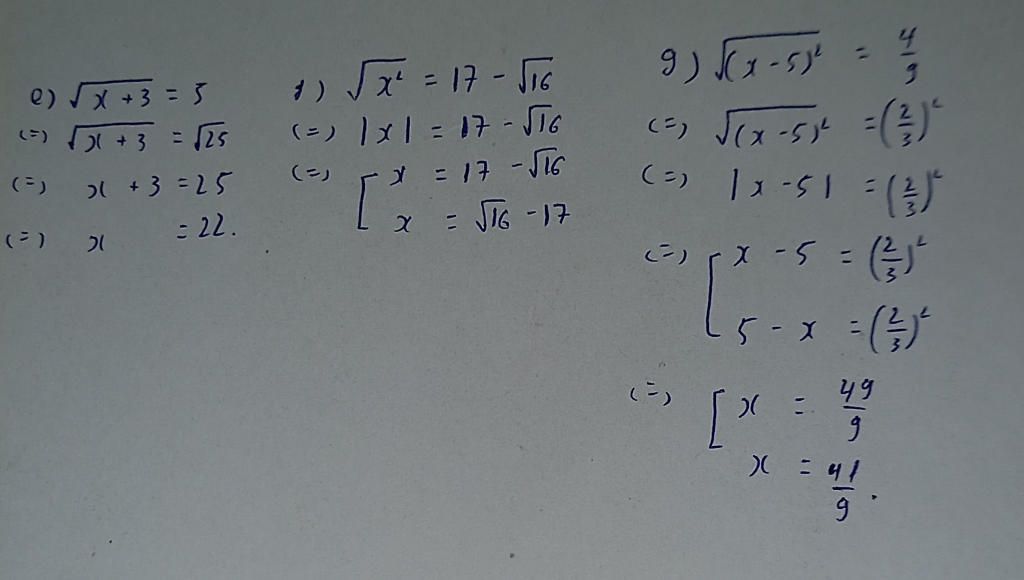 e) √(x + 3) = 5
(=) √(x + 3) = √25
(=) x + 3 = 25
(=) x = 22.
f) √(x²) = 17 - √16
(=) |x| = 17 - √16
(=) [ x = 17 - √16
x = √16 - 17
g) √((x - 5)²) = 4/9
(=) √((x - 5)²) = (2/3)²
(=) |x - 5| = (2/3)²
(=) [ x - 5 = (2/3)²
5 - x = (2/3)²
(=) [ x = 49/9
x = 41/9.